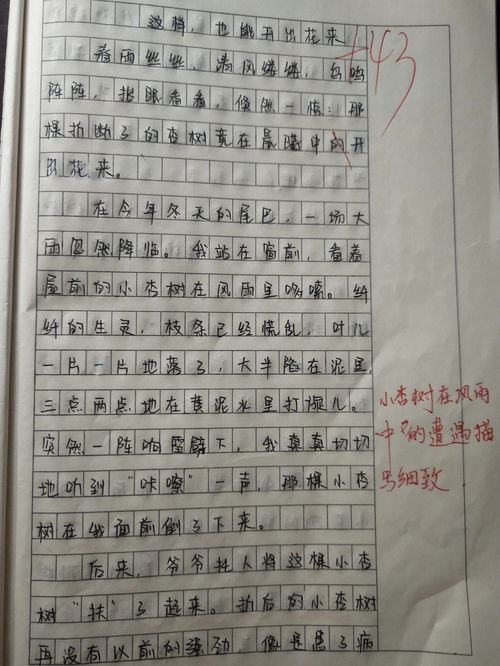 这样，也能开出花来
43
春雨丝丝，清风缕缕，鸟鸣
阵阵，抬眼看看，倏然一惊：那
棵折断了的杏树竟在晨曦中的开
出花来。
在今年冬天的尾巴，一场大
雨忽然降临。我站在窗前，看着
屋前的小杏树在风雨里哆嗦。纤
纤的生灵，枝条已经慌乱，叶儿
一片一片地落了，大半陷在泥里，
三点两点地在黄泥水里打漩儿。
突然一阵响雷劈下，我真真切切
地听到“咔嚓”一声，那棵小杏
树在我面前倒了下来。
后来，爷爷托人将这棵小杏
树“扶”了起来。折后的小杏树
再没有以前的强劲，像是患了病
小杏树在风雨
中的遭遇描
写细致